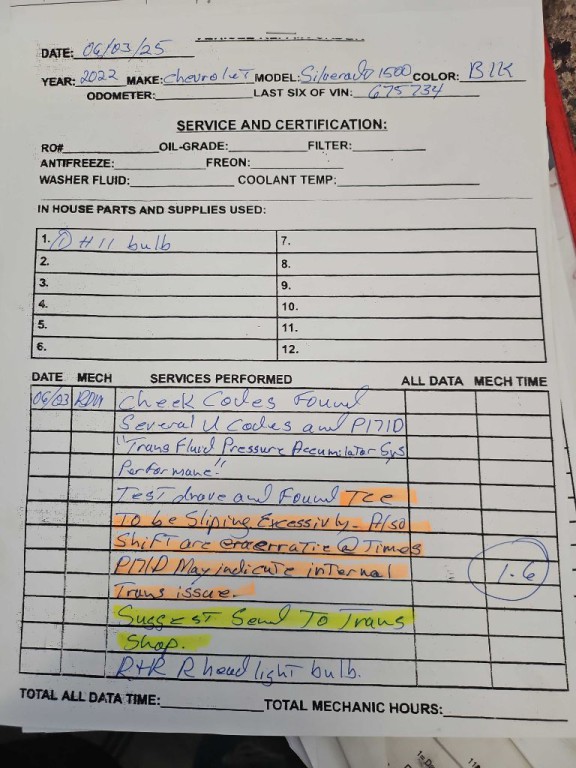 DATE: 06/03/25
YEAR: 2022 MAKE: Chevrolet MODEL: Silverado 1500 COLOR: Blk
ODOMETER: LAST SIX OF VIN: 675734
SERVICE AND CERTIFICATION:
RO# OIL-GRADE: FILTER:
ANTIFREEZE: FREON:
WASHER FLUID: COOLANT TEMP:
IN HOUSE PARTS AND SUPPLIES USED:
1. ① H11 bulb 7.
2. 8.
3. 9.
4. 10.
5. 11.
6. 12.
DATE MECH SERVICES PERFORMED ALL DATA MECH TIME
06/03 Check Codes Found
Several U Codes and P171D
"Trans Fluid Pressure Accumilator Sys
Performance"
Test drove and Found TCC
To be Sliping Excessivly. Also
Shift are erratic @ Times
P171D May indicate internal 1.6
Trans issue.
Suggest Send To Trans
Shop.
R+R R head light bulb.
TOTAL ALL DATA TIME: TOTAL MECHANIC HOURS: